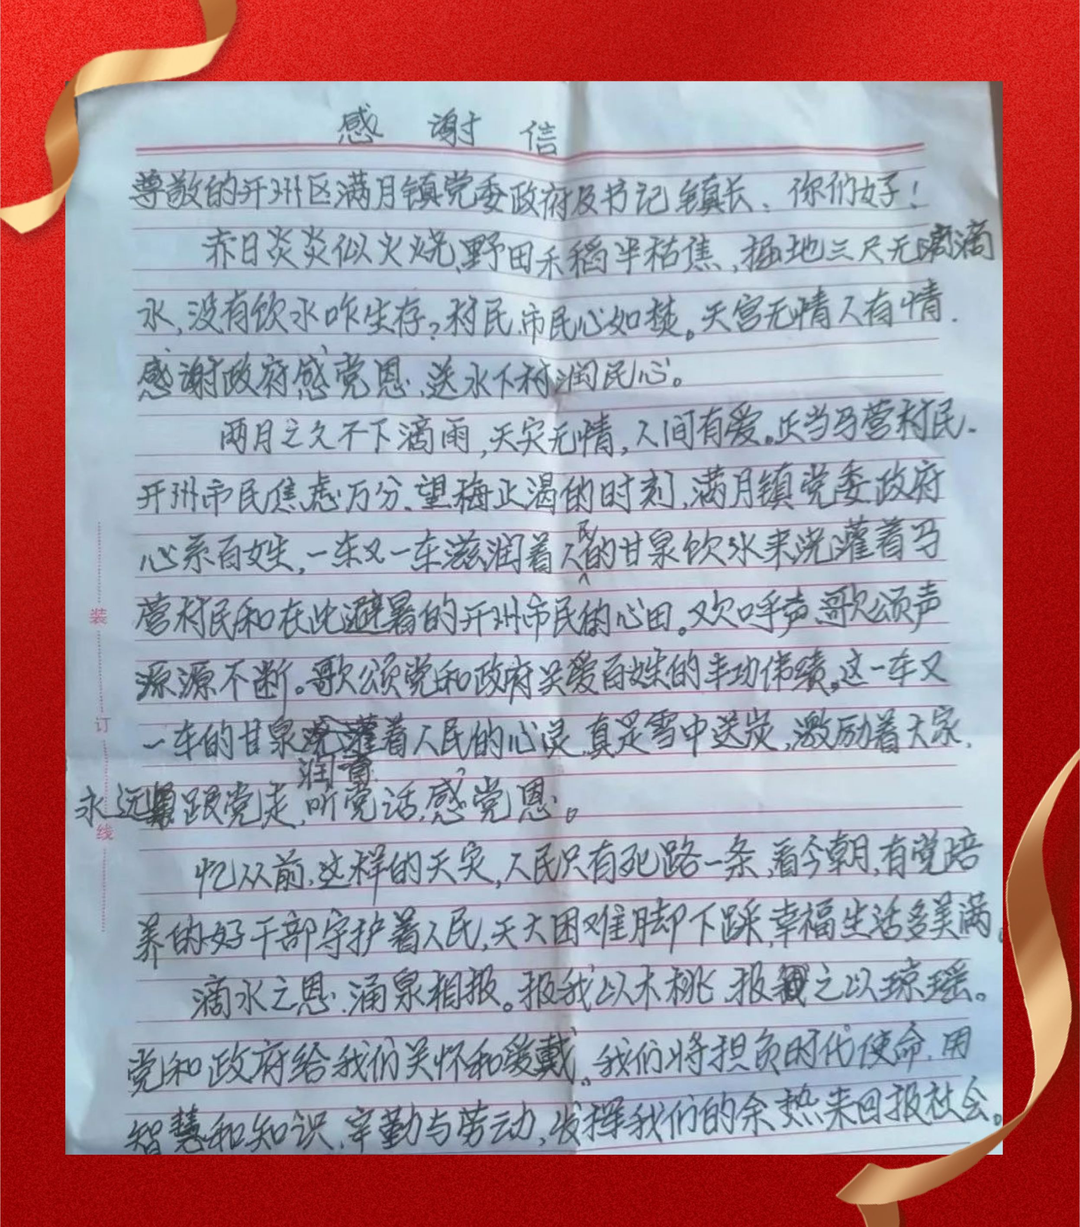 感谢信
尊敬的开州区满月镇党委政府及书记镇长、你们好！
赤日炎炎似火烧、野田禾稻半枯焦，掘地三尺无滴
水，没有饮水咋生存？村民市民心如焚。天宫无情人有情．
感谢政府感党恩、送水下村润民心。
两月之久不下滴雨，天灾无情，人间有爱。正当马营村民．
开州市民焦虑万分、望梅止渴的时刻，满月镇党委政府
心系百姓，一车又一车滋润着人民的甘泉饮水来浇灌着马
营村民和在此避暑的开州市民的心田。欢呼声、歌颂声
源源不断。歌颂党和政府关爱百姓的丰功伟绩。这一车又
一车的甘泉润育着人民的心灵，真是雪中送炭，激励着大家，
永远跟党走，听党话，感党恩。
忆从前，这样的天灾，人民只有死路一条，看今朝，有党培
养的好干部守护着人民，天大困难脚下踩，幸福生活多美满。
滴水之恩、涌泉相报。报我以木桃、报之以琼瑶。
党和政府给我们关怀和爱戴。我们将担负时代使命，用
智慧和知识，辛勤与劳动，发挥我们的余热来回报社会。
装
订
线